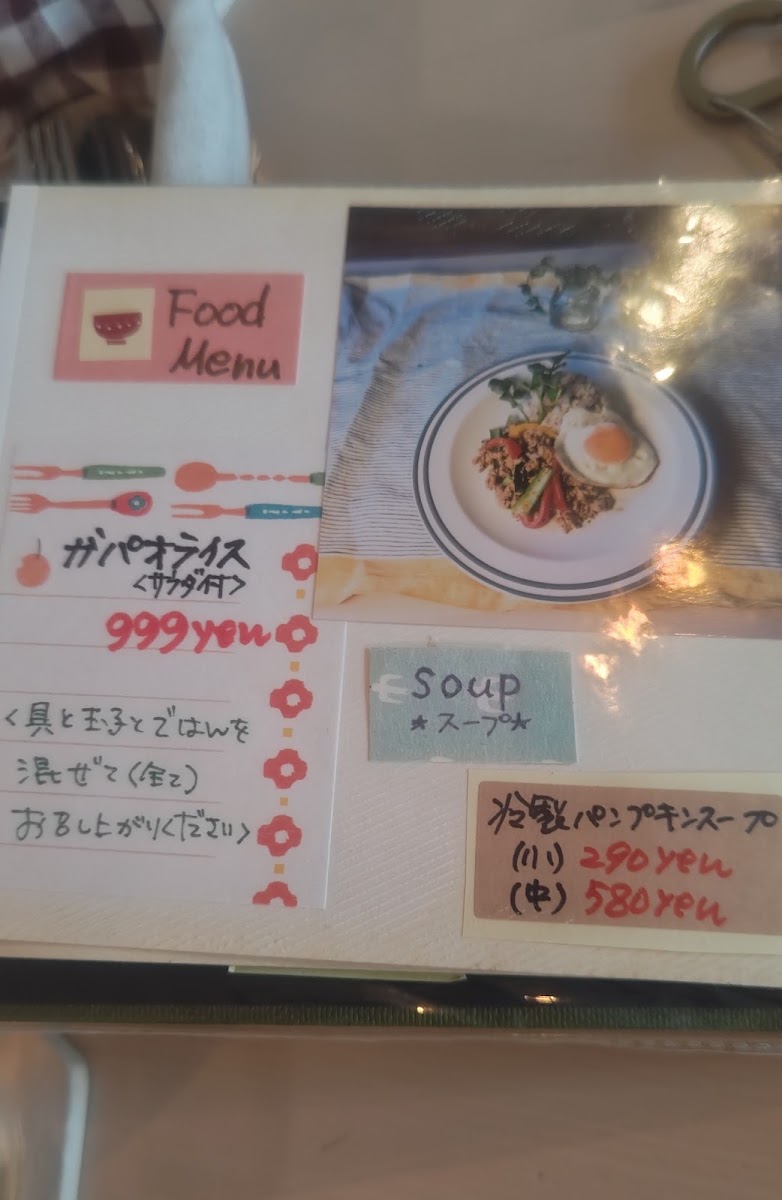 Food
Menu
ガパオライス
<サラダ付>
999yen
<具と玉子とごはんを
混ぜて(全て)
お召し上がりください>
soup
★スープ★
冷製パンプキンスープ
(小) 290yen
(中) 580yen